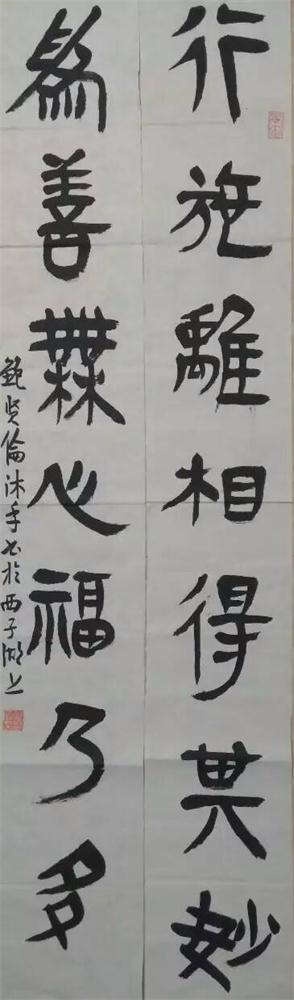 行施離相得其妙
為善無心福乃多
鲍贤倫沐手书於西子湖上